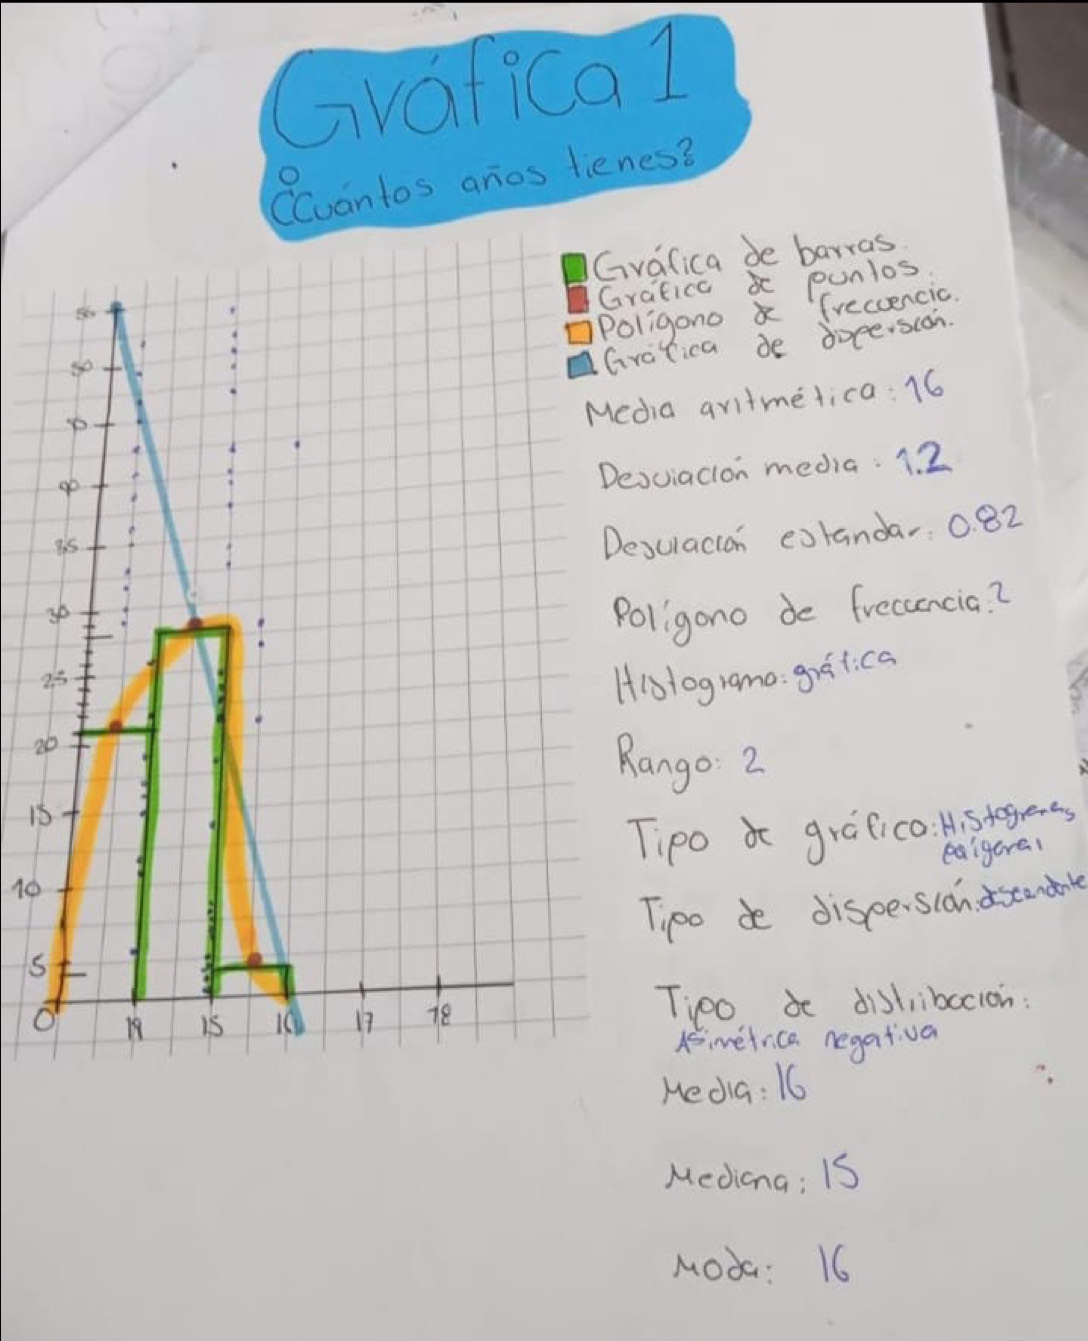 Gráfica 1
¿Cuántos años tienes?
Gráfica de barras.
Gráfica de puntos.
Polígono de frecuencia.
Gráfica de dispersión.
Media aritmética: 16
Desviación media: 1.2
Desviación estandar: 0.82
Polígono de frecuencia: 2
Histograma: gráfica
Rango: 2
Tipo de gráfico:
Tipo de dispersión: descendente
Tipo de distribución:
Asimétrica negativa
Media: 16
Mediana: 15
Moda: 16
50
35
30
25
20
15
10
5
0
15 16 17 18